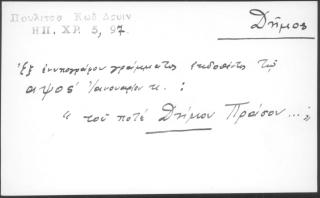 Πουλίτσα Κωδ Δρυιν
ΗΠ. ΧΡ. 5, 97.
Δῆμος
Ἐξ ἐνυπογράφου γράμματος ἐκδοθέντος τῇ
αψοϛ´ Ἰανουαρίου κ. :
" τοῦ ποτέ Δήμου Πράσου ... "